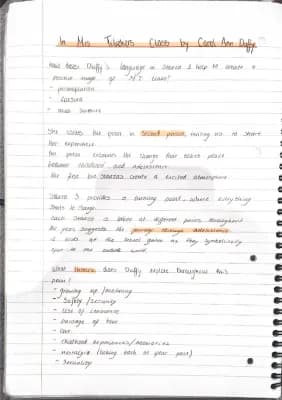 In Mrs Tilschers Class by Carol Ann Duffy
How does Duffy's language in stanza 1 help to create a
positive image of M.T class?
- personification
- caesura
- minor sentence
She writes the poem in second person, inviting us to share
her experience.
The poem examines the change that takes place
between childhood and adolescence.
The first two stanzas create a excited atmosphere.
Stanza 3 provides a turning point where everything
starts to change.
Each stanza is taken at different points throughout
the year, suggests the journey through adolescence
it ends at the school gates as they symbolically
open to the outside world.
What themes does Duffy explore throughout this
poem?
- growing up / maturing
- Safety / security
- Loss of innocence
- passage of time
- love
- childhood experiences/memories
- nostalgia (looking back at your past)
- Sexuality